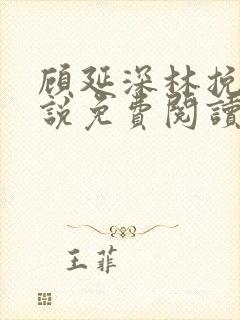 顾延深林挽
說免費閱讀
王菲